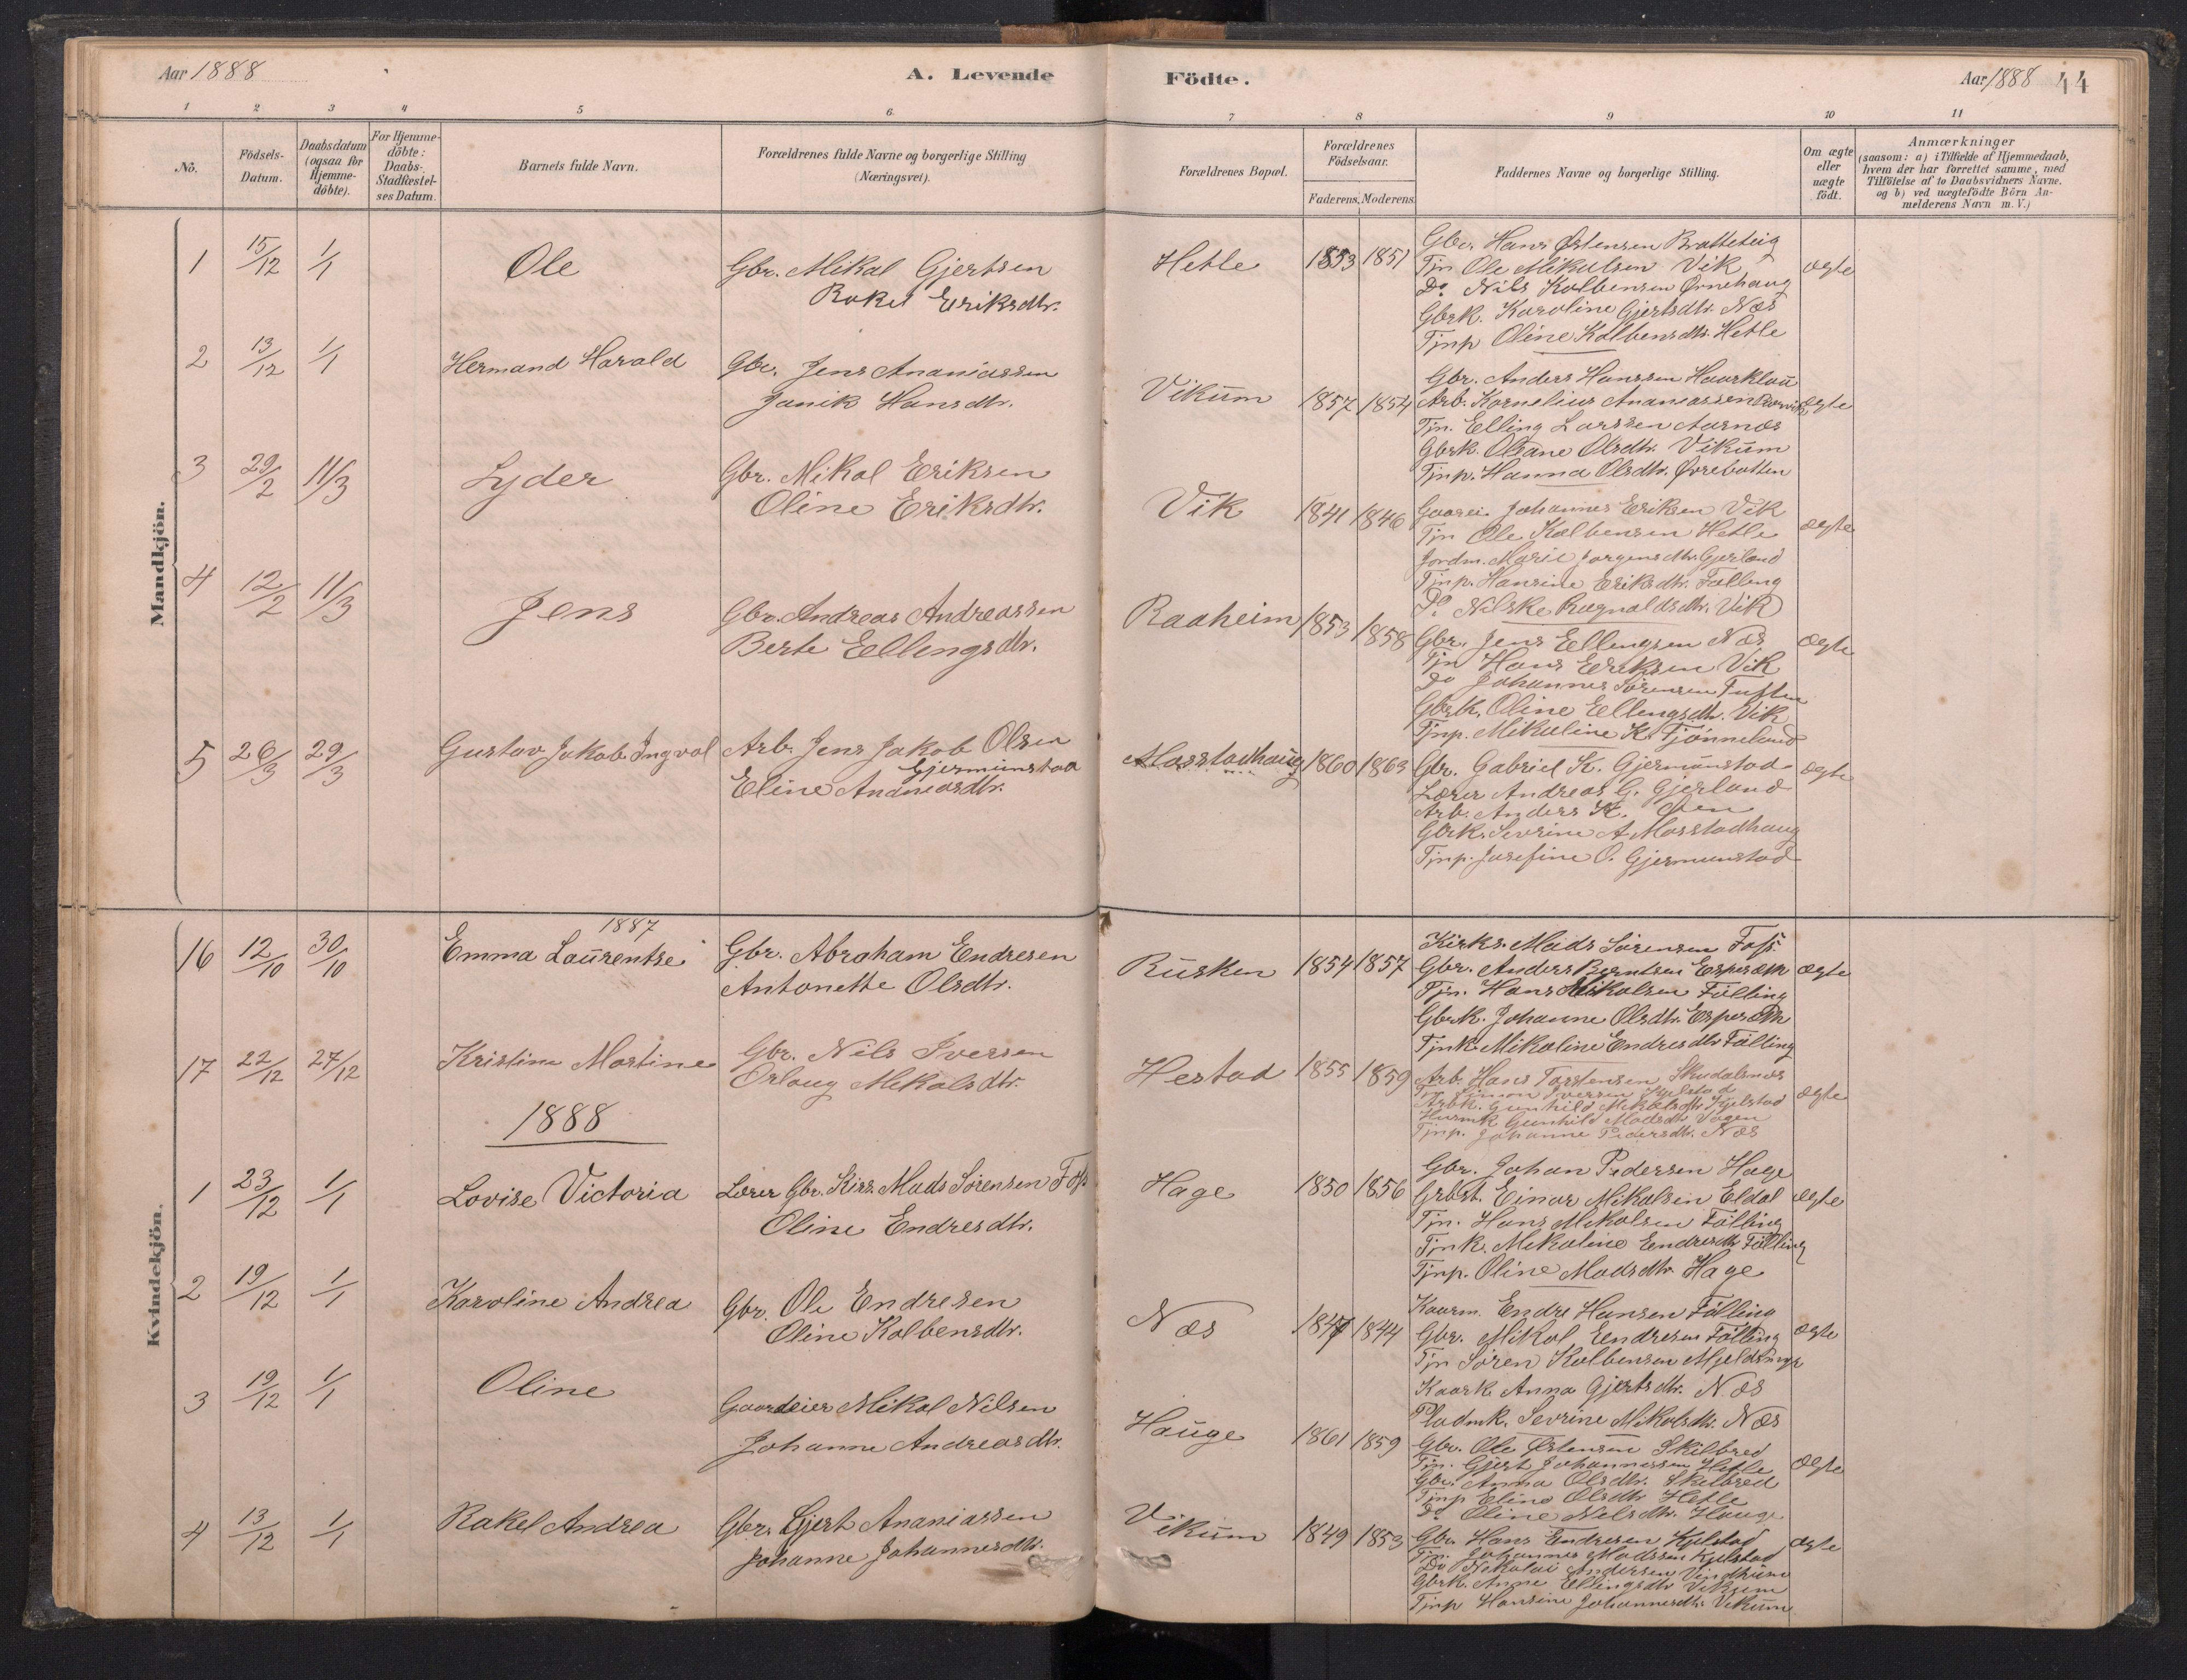 Aar 1888
A. Levende
Födte.
Aar 1888
44
1 2 3 4 5 6 7 8 9 10 11
No.
Födsels-
Datum.
Daabsdatum
(ogsaa for
Hjemme-
döbte).
For Hjemme-
döbte:
Daabs-
Stadfæstel-
ses Datum.
Barnets fulde Navn.
Forældrenes fulde Navne og borgerlige Stilling
(Næringsvei).
Forældrenes Bopæl.
Forældrenes
Födselsaar.
Faderens. Moderens.
Faddernes Navne og borgerlige Stilling.
Om ægte
eller
uægte
födt.
Anmærkninger
(saasom: a) i Tilfælde af Hjemmedaab,
hvem der har forrettet samme, med
Tilföielse af to Daabsvidners Navne.
og b) ved uægtefödte Börn An-
melderens Navn m. V.)
Mandkjön.
1 15/12 1/1 Ole
Gbr. Mikal Gjertsen
Rakel Eriksdtr.
Hetle 1853 1851
Gbr. Hans Østensen Bratteteig
Tjn Ole Mikalsen Vik
Do. Nils Kolbensen Ørnehaug
Gbrk. Karoline Gjertsdtr. Næs
Tjnp Oline Kolbensdtr. Hetle
ægte
2 13/12 1/1 Hermand Harald
Gbr. Jens Ananiassen
Janik Hansdtr.
Vikum 1857 1854
Gbr. Anders Hanssen Haarklau
Arb. Kornelius Ananiassen
Tjn. Elling Larssen Aarnæs
Gbrk. Oliane Olsdtr. Vikum
Tjnp. Hanna Olsdtr. Øvrebotten
ægte
3 29/2 11/3 Lyder
Gbr. Mikal Eriksen
Oline Eriksdtr.
Vik 1841 1846
Gaarei. Johannes Eriksen Vik
Tjn Ole Kolbensen Hetle
Jordm. Marie Jørgensdtr. Gjerland
Tjnp. Hansine Eriksdtr. Fælling
Do. Nilske Ragnaldsdtr. Vik
ægte
4 12/2 11/3 Jens
Gbr. Andreas Andreassen
Berte Ellingsdtr.
Raaheim 1853 1858
Gbr. Jens Ellingsen Næs
Tjn Hans Eriksen Vik
Do Johannes Sørensen Tuften
Gbrk. Oline Ellingsdtr. Vik
Tjnp. Mikaline K. Tjønneland
ægte
5 26/3 29/3 Gustav Jakob Ingval
Arb. Jens Jakob Olsen
Gjermunstad
Eline Andreasdtr.
Masstadhaug 1860 1863
Gbr. Gabriel K. Gjermunstad
Lærer Andreas G. Gjerland
Arb. Anders K. Øen
Gbrk. Sevrine A. Masstadhaug
Tjnp. Josefine O. Gjermunstad
ægte
Kvindekjön.
1887
16 12/10 30/10 Emma Laurentse
Gbr. Abraham Endresen
Antonette Olsdtr.
Rusken 1854 1857
Kirks. Mads Sørensen Foss
Gbr. Anders Berntsen Espesæth
Tjn. Hans Mikalsen Fälling
Gbrk. Johanne Olsdtr. Espesæth
Tjnk. Mikaline Endresdtr Fälling
ægte
17 22/12 27/12 Kristine Martine
Gbr. Nils Iversen
Orlaug Mikalsdtr.
Hestad 1855 1859
Arb. Hans Torstensen Skudalsnæs
Tjn Simon Iversen Kjelstad
Arbk. Gunhild Mikalsdtr Kjelstad
Husmk Gunhild Madsdtr Vaagen
Tjnp. Johanne Pedersdtr. Næs
ægte
1888
1 23/12 1/1 Lovise Victoria
Lærer Gbr. Kirs. Mads Sørensen Foss
Oline Endresdtr.
Hage 1850 1856
Gbr. Johan Pedersen Hage
Grbst. Einar Mikalsen Eldal
Tjn. Hans Mikalsen Fälling
Tjnk. Mikaline Endresdtr Fälling
Tjnp. Oline Madsdtr. Hage
ægte
2 19/12 1/1 Karoline Andrea
Gbr. Ole Endresen
Oline Kolbensdtr.
Næs 1847 1844
Kaarm. Endre Hansen Fälling
Gbr. Mikal Endresen Fälling
Tjn Søren Kolbensen Mjeldunge
Kaark Anna Gjertsdtr. Næs
Pladmk. Sevrine Mikalsdtr. Næs
ægte
3 19/12 1/1 Oline
Gaardeier Mikal Nilsen
Johanne Andreasdtr.
Hauge 1861 1859
Gbr. Ole Østensen Skilbred
Tjn. Gjert Johannessen Hetle
Gbr. Anna Olsdtr. Skilbred
Tjnp Eline Olsdtr Hetle
Do Oline Nilsdtr. Hauge
ægte
4 13/12 1/1 Rakel Andrea
Gbr. Gjert Ananiassen
Johanne Johannesdtr.
Vikum 1849 1853
Gbr. Hans Endresen Kjelstad
Tjn. Johannes Madssen Kjelstad
Do Nikolai Andersen Vindheim
Gbrk. Anne Ellingsdtr Vikum
Tjnp Hansine Johannesdtr. Vikum
ægte